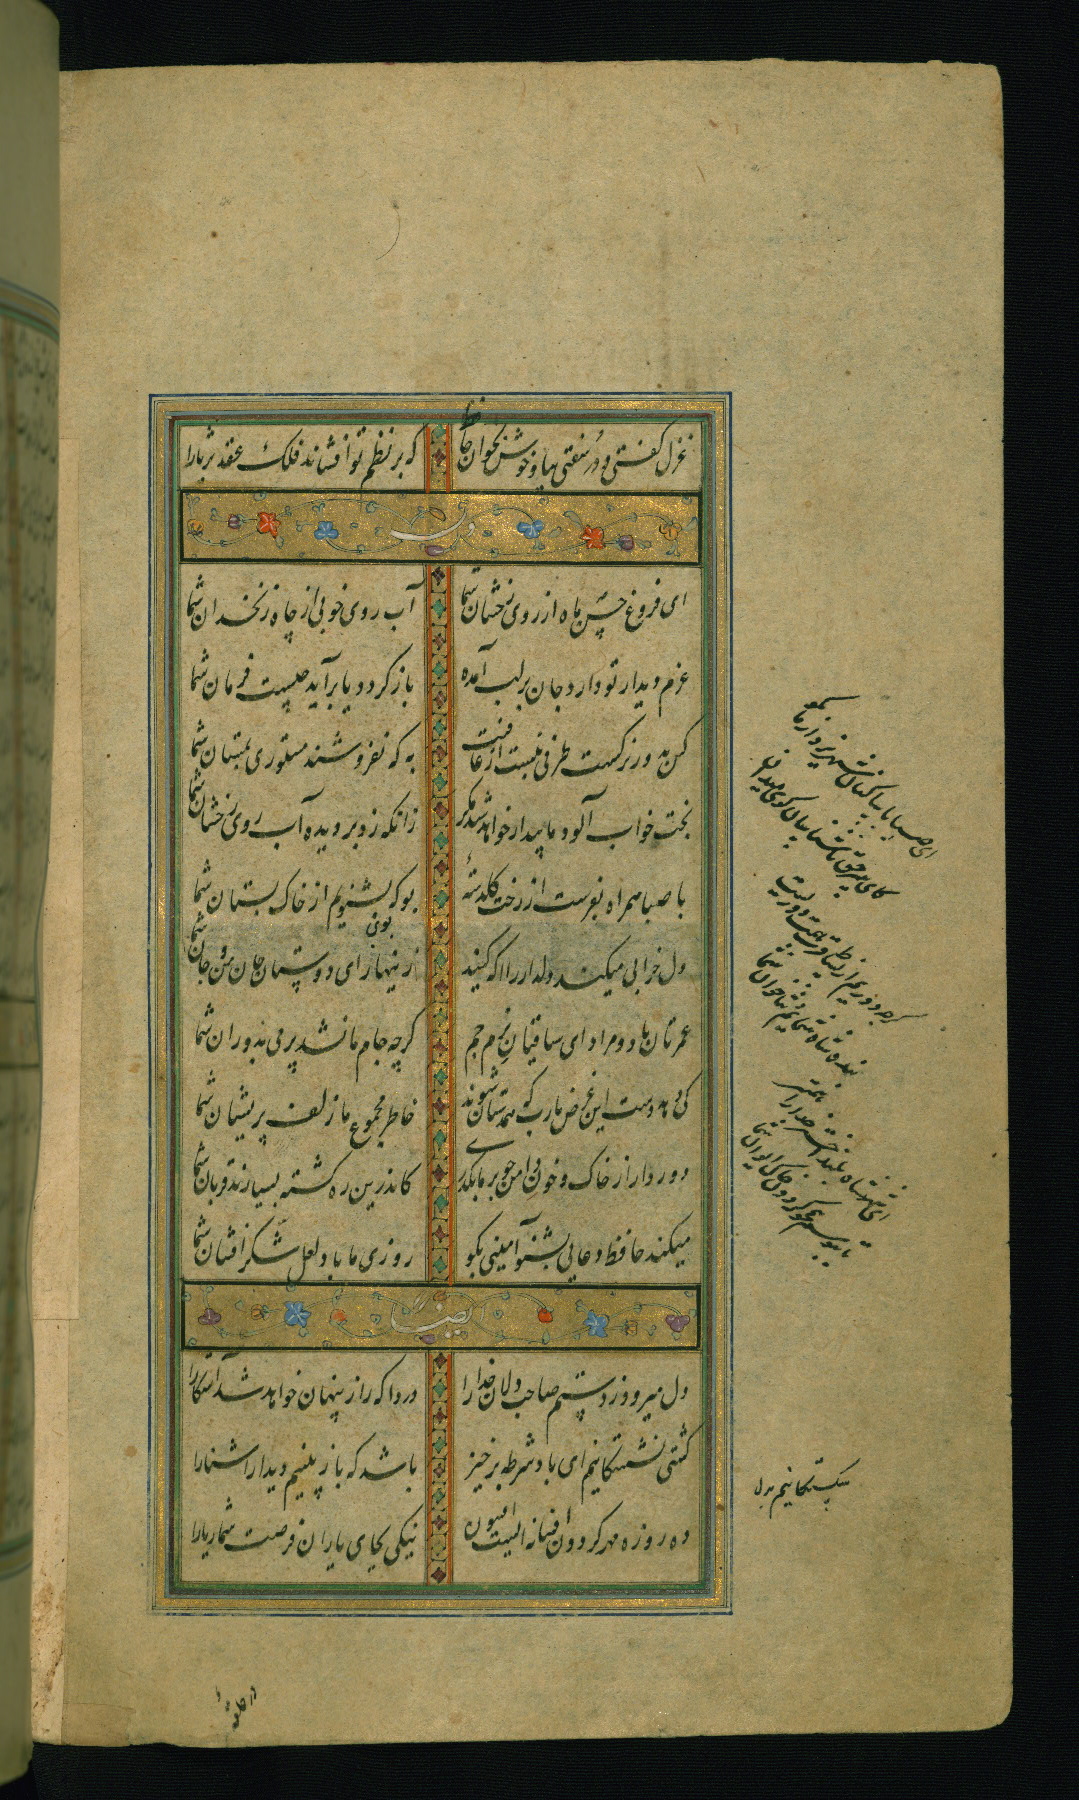 غزل گفتی و در سفتی بیا و خوش بخوان حافظ که بر نظم تو افشاند فلک عقد ثریا را
وله
ای فروغ حسن ماه از روی رخشان شما آب روی خوبی از چاه زنخدان شما
عزم دیدار تو دارد جان بر لب آمده باز گردد یا برآید چیست فرمان شما
کس بدور نرگست طرفی نبست از عافیت به که نفروشند مستوری بمستان شما
بخت خواب آلود ما بیدار خواهد شد مگر زانکه زد بر دیده آب روی رخشان شما
با صبا همراه بفرست از رخت گلدسته بو که بشنویم از خاک بستان شما
بوئی
دل خرابی میکند دلدار را اگه کنید زینهار ای دوستان جان من و جان شما
عمرتان باد و مراد ای ساقیان بزم جم گرچه جام ما نشد پر می بدوران شما
کی دهد دست این غرض یا رب که همدستان شوند خاطر مجموع ما زلف پریشان شما
دور دار از خاک و خون دامن چو بر ما بگذری کاندرین ره کشته بسیارند قربان شما
میکند حافظ دعایی بشنو آمینی بگو روزی ما باد لعل شکر افشان شما
ایضا
دل میرود ز دستم صاحب دلان خدا را دردا که راز پنهان خواهد شد آشکارا
کشتی نشستگانیم ای باد شرطه برخیز باشد که باز بینیم دیدار آشنا را
ده روزه مهر گردون افسانه ایست افسون نیکی بجای یاران فرصت شمار یارا
ای صبا با ساکنان شهر یزد از ما بگو
کای سر حق ناشناسان گوی میدان
گرچه دوریم از بساط قرب همت دور نیست
بنده شاه شمائیم و ثناخوان شما
ای شهنشاه بلند اختر خدا را همتی
تا ببوسم همچو گردون خاک ایوان شما
شکستگانیم بدل